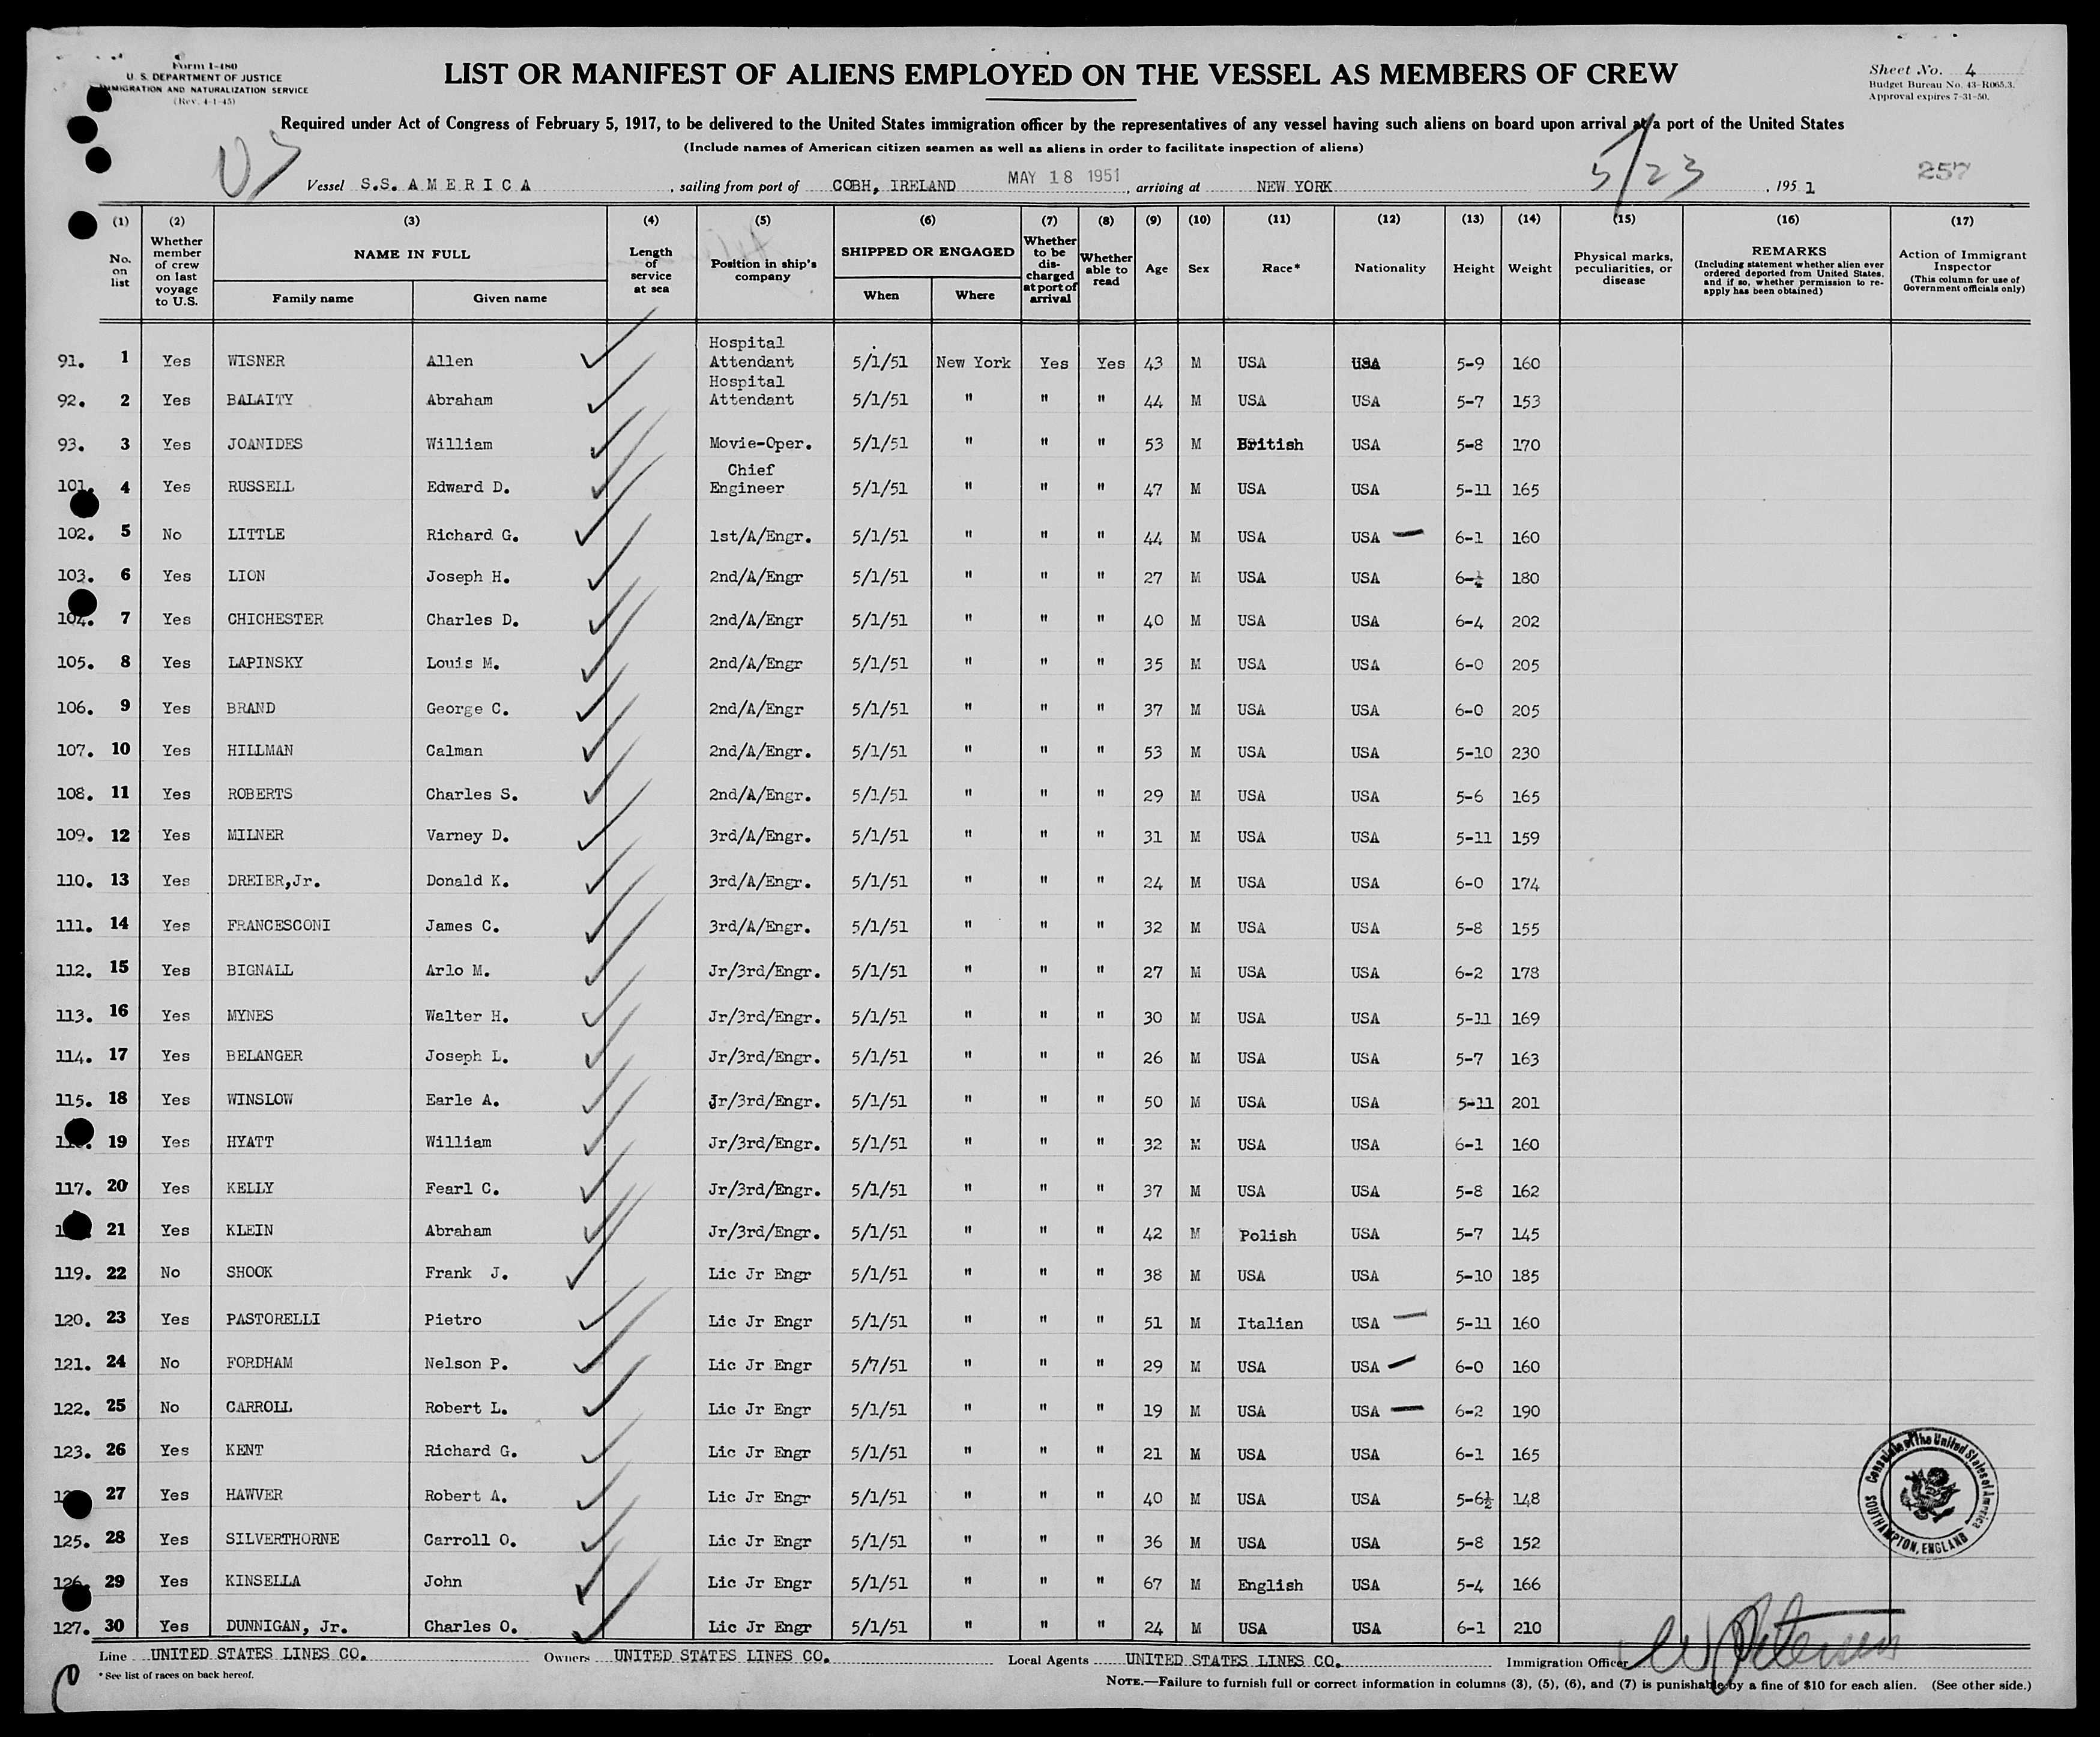 Form I-480
U. S. DEPARTMENT OF JUSTICE
IMMIGRATION AND NATURALIZATION SERVICE
(Rev. 4-1-45)
LIST OR MANIFEST OF ALIENS EMPLOYED ON THE VESSEL AS MEMBERS OF CREW
Sheet No. 4
Budget Bureau No. 43-R065.3.
Approval expires 7-31-50.
Required under Act of Congress of February 5, 1917, to be delivered to the United States immigration officer by the representatives of any vessel having such aliens on board upon arrival at a port of the United States
(Include names of American citizen seamen as well as aliens in order to facilitate inspection of aliens)
US
Vessel S.S. AMERICA, sailing from port of COBH, IRELAND MAY 18 1951, arriving at NEW YORK 5/23, 1951
257
(1) No. on list (2) Whether member of crew on last voyage to U.S. (3) NAME IN FULL Family name Given name (4) Length of service at sea (5) Position in ship's company (6) SHIPPED OR ENGAGED When Where (7) Whether to be discharged at port of arrival (8) Whether able to read (9) Age (10) Sex (11) Race* (12) Nationality (13) Height (14) Weight (15) Physical marks, peculiarities, or disease (16) REMARKS (Including statement whether alien ever ordered deported from United States, and if so, whether permission to reapply has been obtained) (17) Action of Immigrant Inspector (This column for use of Government officials only)
91. 1 Yes WISNER Allen Hospital Attendant 5/1/51 New York Yes Yes 43 M USA USA 5-9 160
92. 2 Yes BALAITY Abraham Hospital Attendant 5/1/51 " " " 44 M USA USA 5-7 153
93. 3 Yes JOANIDES William Movie-Oper. 5/1/51 " " " 53 M British USA 5-8 170
101. 4 Yes RUSSELL Edward D. Chief Engineer 5/1/51 " " " 47 M USA USA 5-11 165
102. 5 No LITTLE Richard G. 1st/A/Engr. 5/1/51 " " " 44 M USA USA — 6-1 160
103. 6 Yes LION Joseph H. 2nd/A/Engr 5/1/51 " " " 27 M USA USA 6-½ 180
104. 7 Yes CHICHESTER Charles D. 2nd/A/Engr 5/1/51 " " " 40 M USA USA 6-4 202
105. 8 Yes LAPINSKY Louis M. 2nd/A/Engr 5/1/51 " " " 35 M USA USA 6-0 205
106. 9 Yes BRAND George C. 2nd/A/Engr 5/1/51 " " " 37 M USA USA 6-0 205
107. 10 Yes HILLMAN Calman 2nd/A/Engr. 5/1/51 " " " 53 M USA USA 5-10 230
108. 11 Yes ROBERTS Charles S. 2nd/A/Engr. 5/1/51 " " " 29 M USA USA 5-6 165
109. 12 Yes MILNER Varney D. 3rd/A/Engr. 5/1/51 " " " 31 M USA USA 5-11 159
110. 13 Yes DREIER,Jr. Donald K. 3rd/A/Engr. 5/1/51 " " " 24 M USA USA 6-0 174
111. 14 Yes FRANCESCONI James C. 3rd/A/Engr. 5/1/51 " " " 32 M USA USA 5-8 155
112. 15 Yes BIGNALL Arlo M. Jr/3rd/Engr. 5/1/51 " " " 27 M USA USA 6-2 178
113. 16 Yes MYNES Walter H. Jr/3rd/Engr. 5/1/51 " " " 30 M USA USA 5-11 169
114. 17 Yes BELANGER Joseph L. Jr/3rd/Engr. 5/1/51 " " " 26 M USA USA 5-7 163
115. 18 Yes WINSLOW Earle A. Jr/3rd/Engr. 5/1/51 " " " 50 M USA USA 5-11 201
19 Yes HYATT William Jr/3rd/Engr. 5/1/51 " " " 32 M USA USA 6-1 160
117. 20 Yes KELLY Fearl C. Jr/3rd/Engr. 5/1/51 " " " 37 M USA USA 5-8 162
21 Yes KLEIN Abraham Jr/3rd/Engr. 5/1/51 " " " 42 M Polish USA 5-7 145
119. 22 No SHOOK Frank J. Lic Jr Engr 5/1/51 " " " 38 M USA USA 5-10 185
120. 23 Yes PASTORELLI Pietro Lic Jr Engr 5/1/51 " " " 51 M Italian USA — 5-11 160
121. 24 No FORDHAM Nelson P. Lic Jr Engr 5/7/51 " " " 29 M USA USA — 6-0 160
122. 25 No CARROLL Robert L. Lic Jr Engr 5/1/51 " " " 19 M USA USA — 6-2 190
123. 26 Yes KENT Richard G. Lic Jr Engr 5/1/51 " " " 21 M USA USA 6-1 165
27 Yes HAWVER Robert A. Lic Jr Engr 5/1/51 " " " 40 M USA USA 5-6½ 148
125. 28 Yes SILVERTHORNE Carroll O. Lic Jr Engr 5/1/51 " " " 36 M USA USA 5-8 152
126. 29 Yes KINSELLA John Lic Jr Engr 5/1/51 " " " 67 M English USA 5-4 166
127. 30 Yes DUNNIGAN, Jr. Charles O. Lic Jr Engr 5/1/51 " " " 24 M USA USA 6-1 210
Consulate of the United States of America SOUTHAMPTON, ENGLAND
Line UNITED STATES LINES CO. Owners UNITED STATES LINES CO. Local Agents UNITED STATES LINES CO. Immigration Officer
* See list of races on back hereof.
NOTE.—Failure to furnish full or correct information in columns (3), (5), (6), and (7) is punishable by a fine of $10 for each alien. (See other side.)